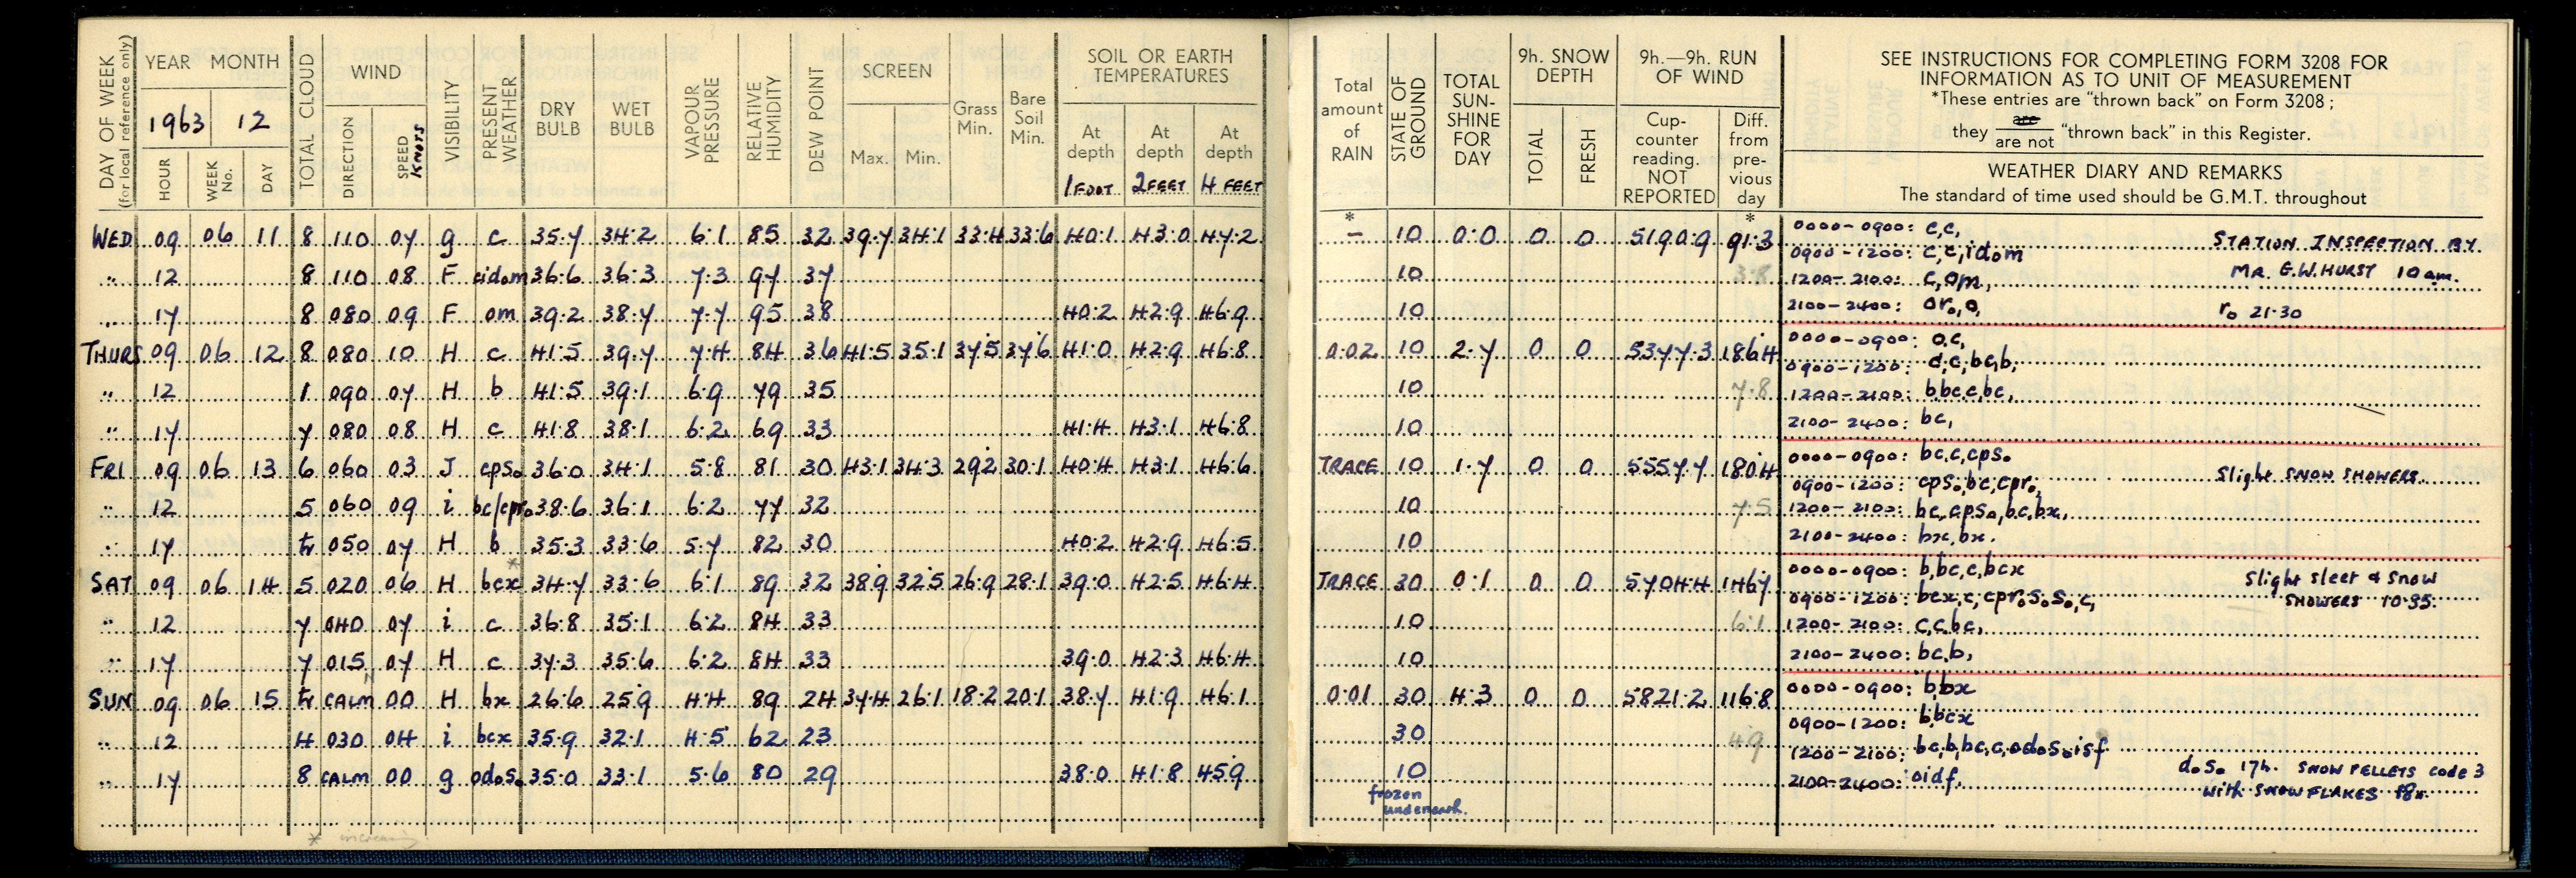 DAY OF WEEK (for local reference only)
YEAR MONTH
1963 12
HOUR WEEK No. DAY
TOTAL CLOUD
WIND
DIRECTION SPEED KNOTS
VISIBILITY
PRESENT WEATHER
DRY BULB
WET BULB
VAPOUR PRESSURE
RELATIVE HUMIDITY
DEW POINT
SCREEN
Max. Min.
Grass Min.
Bare Soil Min.
SOIL OR EARTH TEMPERATURES
At depth 1 FOOT
At depth 2 FEET
At depth 4 FEET
Total amount of RAIN
STATE OF GROUND
TOTAL SUN-SHINE FOR DAY
9h. SNOW DEPTH
TOTAL FRESH
9h.—9h. RUN OF WIND
Cup-counter reading. NOT REPORTED
Diff. from pre-vious day
SEE INSTRUCTIONS FOR COMPLETING FORM 3208 FOR
INFORMATION AS TO UNIT OF MEASUREMENT
*These entries are "thrown back" on Form 3208;
they are / are not "thrown back" in this Register.
WEATHER DIARY AND REMARKS
The standard of time used should be G.M.T. throughout
* *
WED 09 06 11 8 110 07 g c 35.7 34.2 6.1 85 32 39.7 34.1 33.4 33.6 40.1 43.0 47.2 – 10 0.0 0 0 5190.9 91.3 0000-0900: c,c, STATION INSPECTION BY
0900-1200: c,c,idom
" 12 8 110 08 F cidom 36.6 36.3 7.3 97 37 10 3.8 1200-2100: c,om, MR. G.W. HURST 10 am.
" 17 8 080 09 F om 39.2 38.7 7.7 95 38 40.2 42.9 46.9 10 2100-2400: oro,o, ro 21.30
THURS 09 06 12 8 080 10 H c 41.5 39.7 7.4 84 36 41.5 35.1 37.5 37.6 41.0 42.9 46.8 0.02 10 2.7 0 0 5377.3 186.4 0000-0900: o,c,
0900-1200: d,c,bc,b,
" 12 1 090 07 H b 41.5 39.1 6.9 79 35 10 7.8 1200-2100: b,bc,c,bc,
" 17 7 080 08 H c 41.8 38.1 6.2 69 33 41.4 43.1 46.8 10 2100-2400: bc,
FRI 09 06 13 6 060 03 J cpso 36.0 34.1 5.8 81 30 43.1 34.3 29.2 30.1 40.4 43.1 46.6 TRACE 10 1.7 0 0 5557.7 180.4 0000-0900: bc,c,cpso Slight SNOW SHOWERS
0900-1200: cpso,bc,cpro,
" 12 5 060 09 i bc/cpro 38.6 36.1 6.2 77 32 10 7.5 1200-2100: bc,cpso,bc,bx,
" 17 tr 050 07 H b 35.3 33.6 5.7 82 30 40.2 42.9 46.5 10 2100-2400: bx,bx.
SAT 09 06 14 5 020 06 H bcx* 34.7 33.6 6.1 89 32 38.9 32.5 26.9 28.1 39.0 42.5 46.4 TRACE 30 0.1 0 0 5704.4 146.7 0000-0900: b,bc,c,bcx Slight sleet & snow
0900-1200: bcx,c,cproso,so,c, SHOWERS 10.35.
" 12 7 040 07 i c 36.8 35.1 6.2 84 33 10 6.1 1200-2100: c,c,bc,
" 17 7 015 07 H c 37.3 35.6 6.2 84 33 39.0 42.3 46.4 10 2100-2400: bc,b,
SUN 09 06 15 tr CALM 00 H bx 26.6 25.9 4.4 89 24 37.4 26.1 18.2 20.1 38.7 41.9 46.1 0.01 30 4.3 0 0 5821.2 116.8 0000-0900: b,bx
0900-1200: b,bcx
" 12 4 030 04 i bcx 35.9 32.1 4.5 62 23 30 4.9 1200-2100: bc,b,bc,c,odoso,isf
" 17 8 CALM 00 g odoso 35.0 33.1 5.6 80 29 38.0 41.8 45.9 10 2100-2400: oidf, doso 17h. SNOW PELLETS code 3
frozen underneath. with SNOWFLAKES 18h.
* increasing